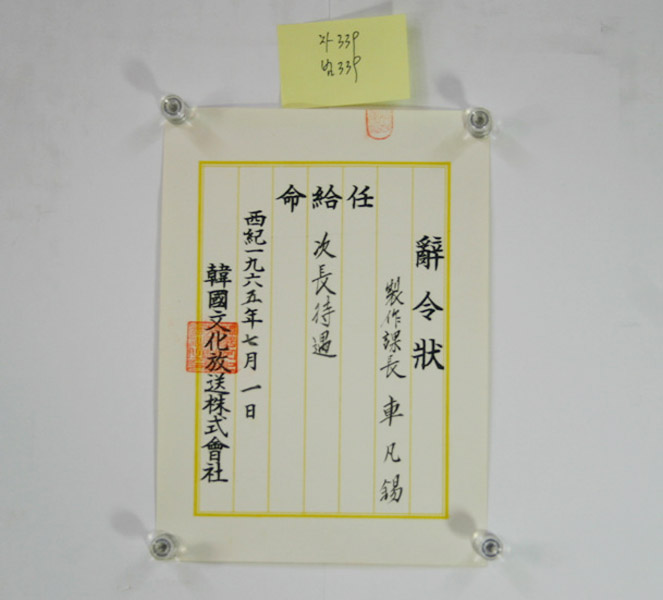 자339
범339
辭令狀
製作課長 車凡錫
任
給 次長待遇
命
西紀一九六五年七月一日
韓國文化放送株式會社